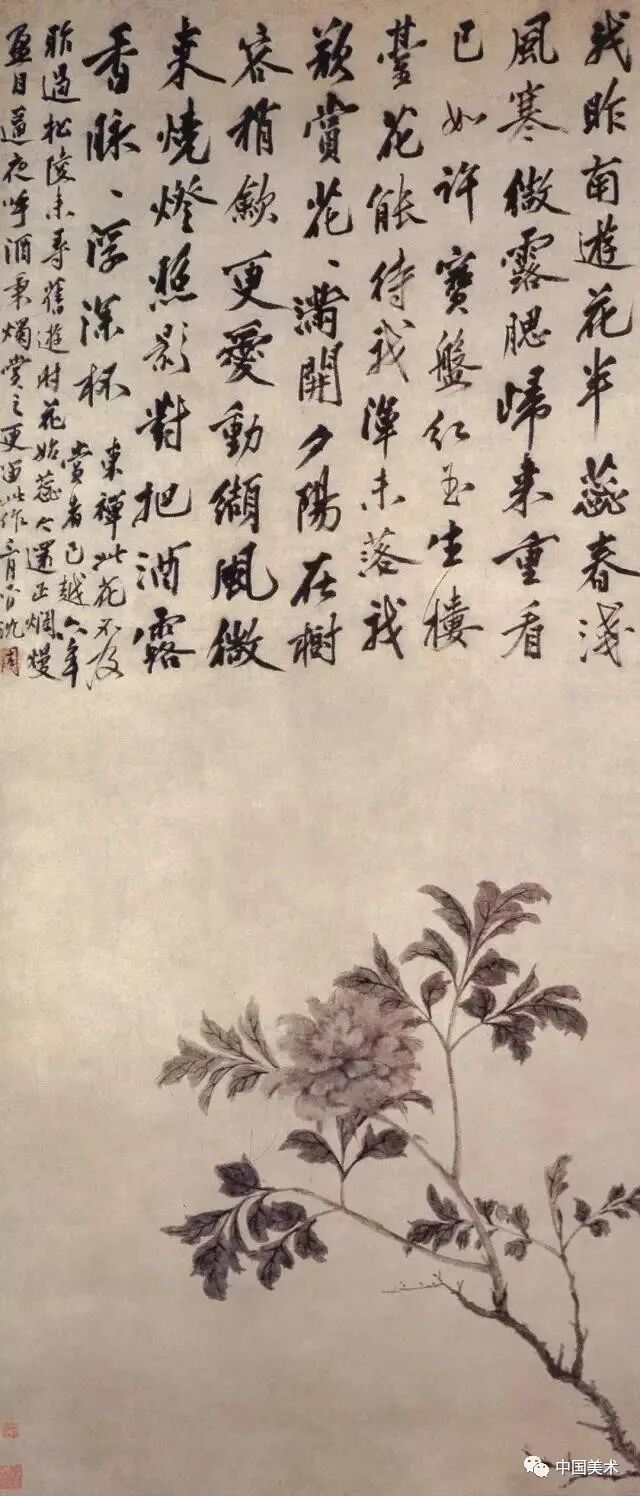 我昨南遊花半蕊春淺
風寒微露腮歸來重看
已如許寶盤紅玉生樓
臺花能待我渾未落我
欲賞花〻滿開夕陽在樹
容稍歛更愛動纈風微
來燒燈照影對把酒露
香脉〻浮深杯
東禪此花不及
賞者已越六年
昨過松陵未尋舊遊時花始蕊今還正爛熳
盈目逼夜呼酒秉燭賞之更此作沈周
中国美术